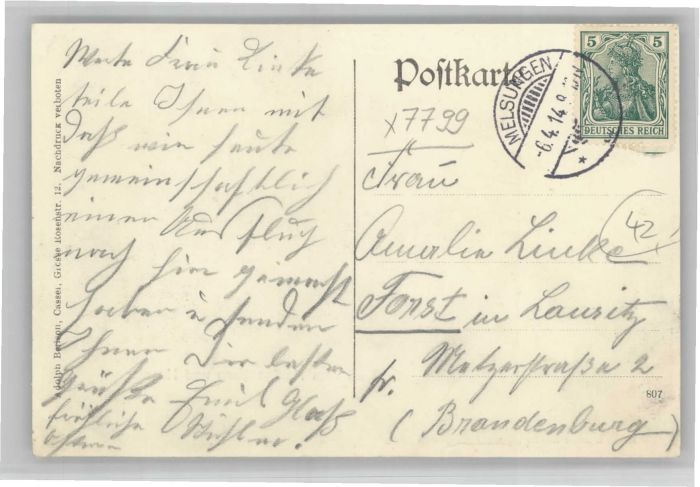 Werte Frau Linke
teile Ihnen mit
daß wir heute
gemeinschaftlich
einen Ausflug
nach hier gemacht
haben u senden
Ihnen die besten
Grüße Emil
fröhliche
Ostern
Adolph Cassel, Grosse Rosenstr. 12. Nachdruck verboten
Postkarte
MELSUNGEN
-6.4.14
5 5
DEUTSCHES REICH
x7799
Frau
Amalie Linke
42
Forst in Lausitz
Metzerstraße 2
(Brandenburg)
807